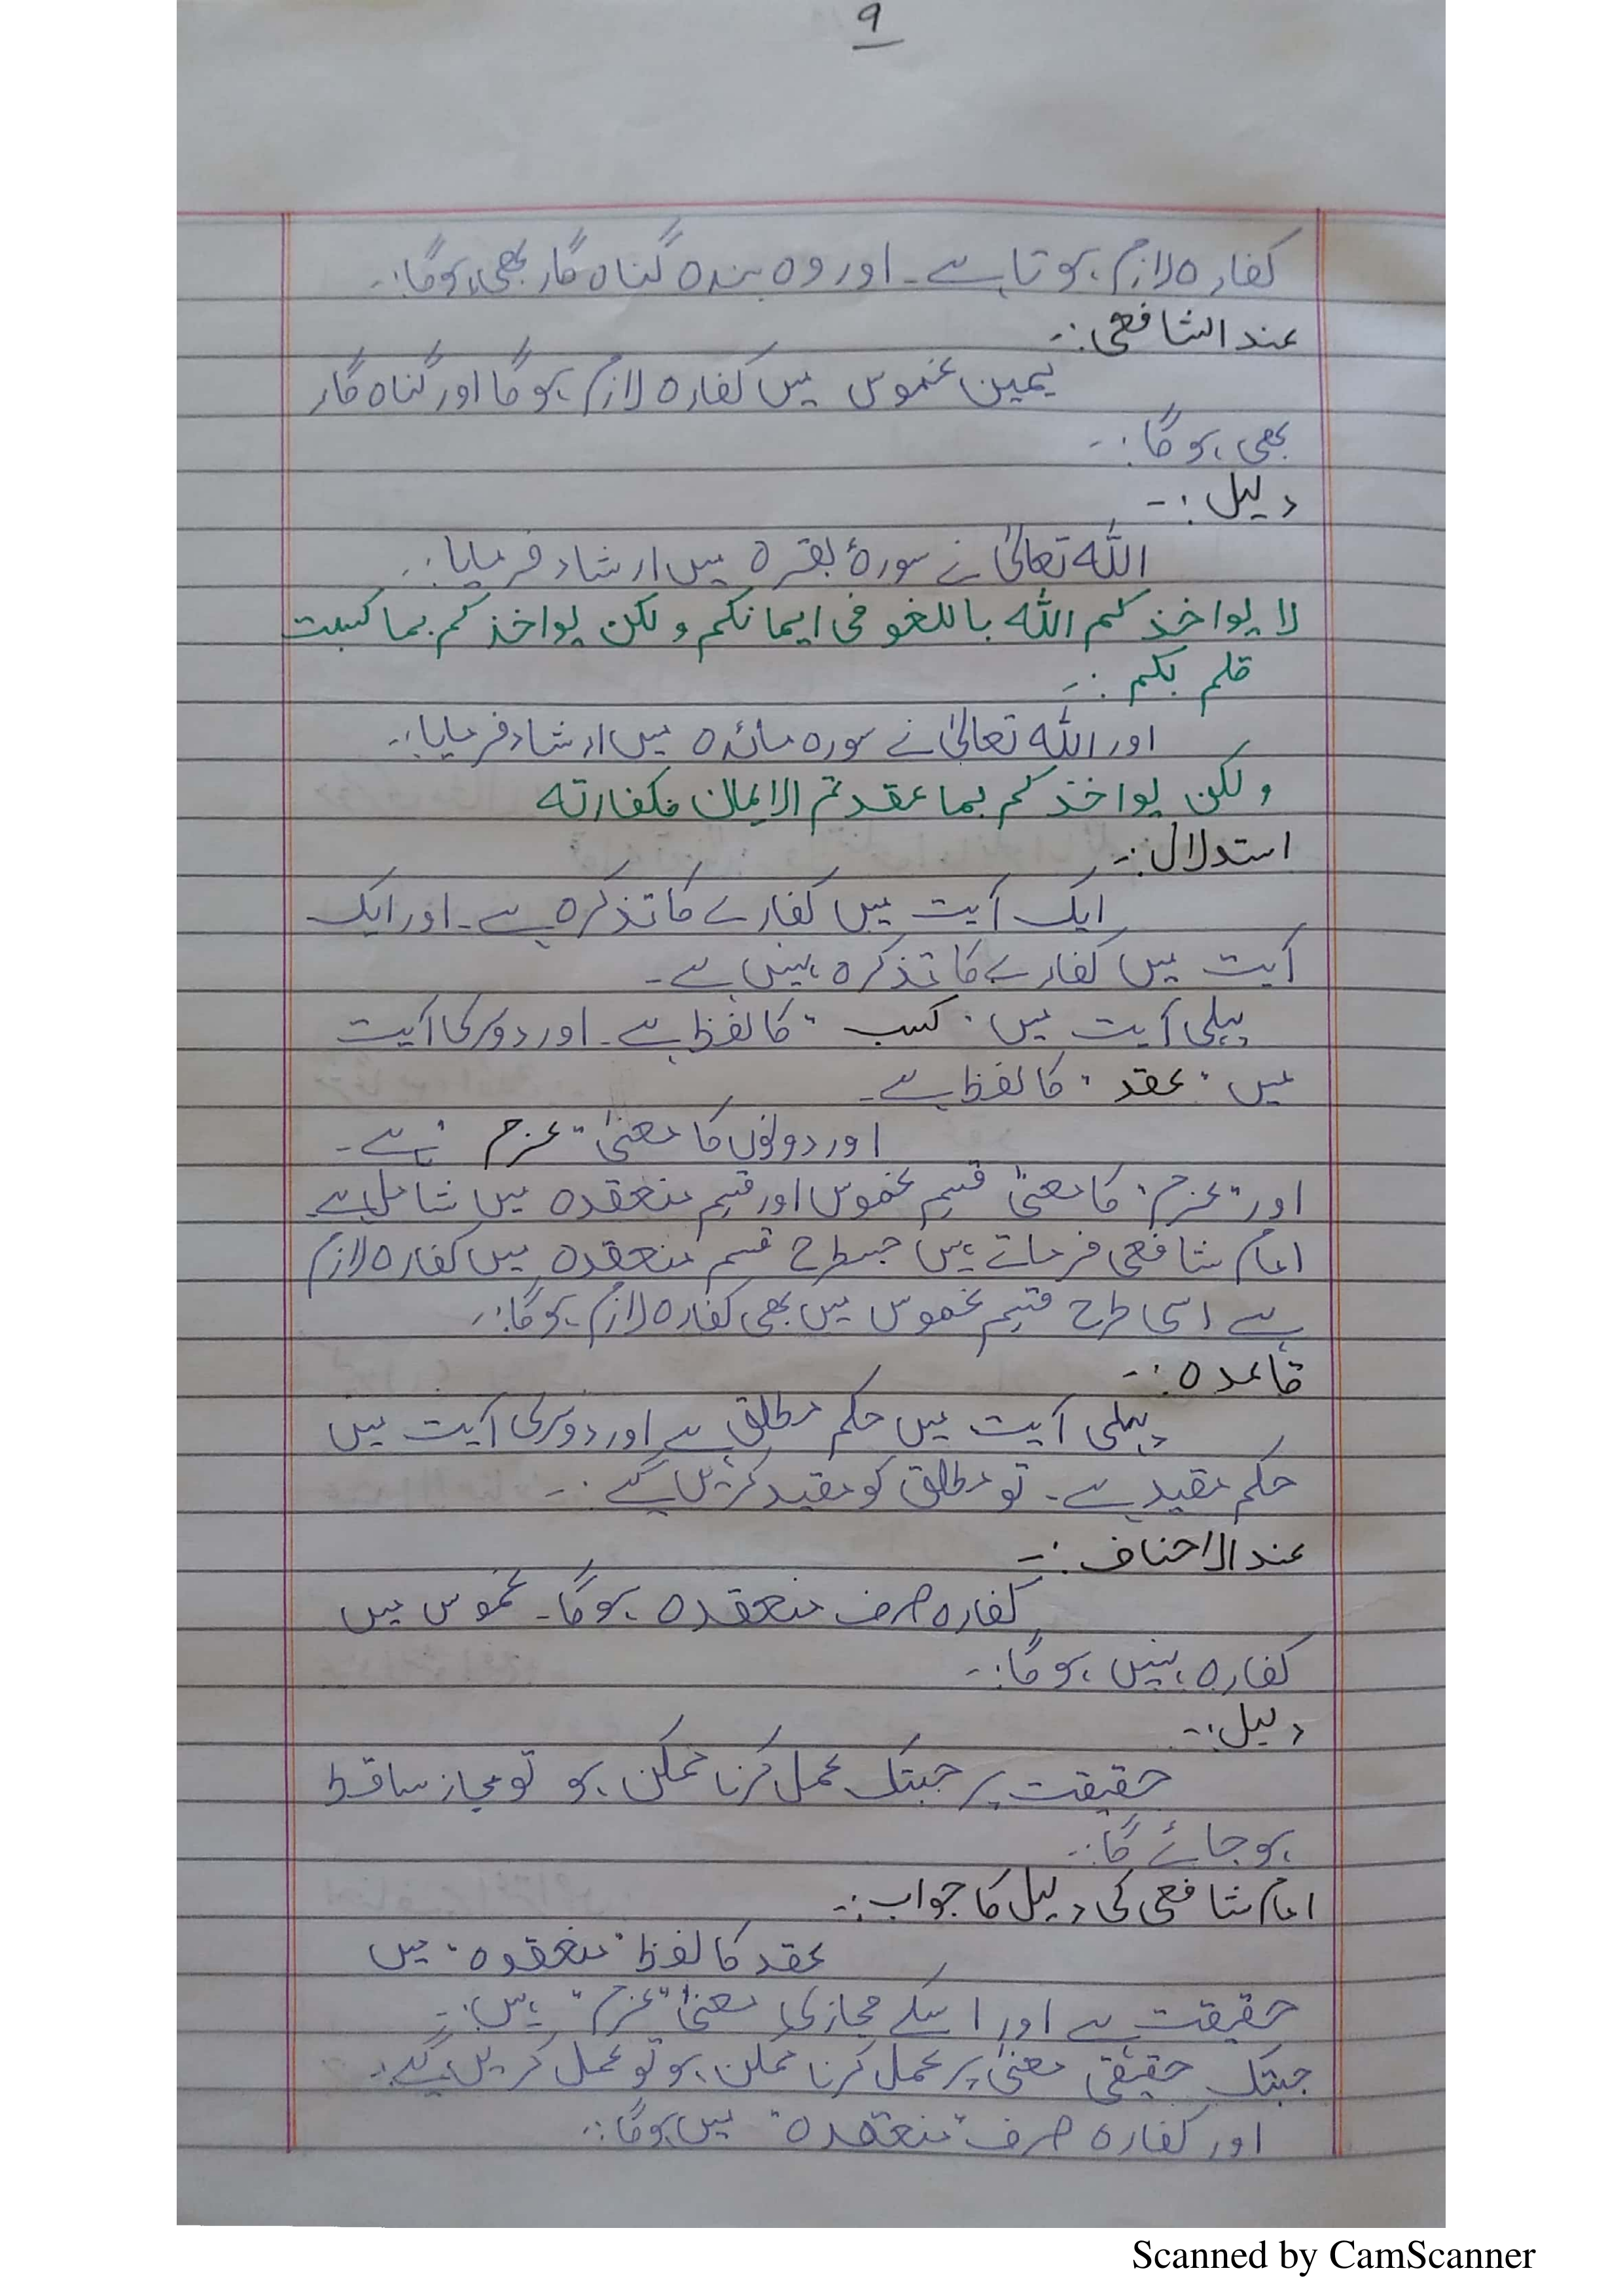 ۹
کفارہ لازم ہوتا ہے۔ اور وہ بندہ گناہ گار بھی ہوگا:۔
عند الشافعی:۔
یمین غموس میں کفارہ لازم ہوگا اور گناہ گار
بھی ہوگا:۔
دلیل:۔
اللہ تعالیٰ نے سورۂ بقرہ میں ارشاد فرمایا:۔
لا یواخذکم اللہ باللغو فی ایمانکم ولکن یواخذکم بما کسبت
قلم بکم:۔
اور اللہ تعالیٰ نے سورہ مائدہ میں ارشاد فرمایا:۔
ولکن یواخذکم بما عقدتم الایمان فکفارتہ
استدلال:۔
ایک آیت میں کفارے کا تذکرہ ہے۔ اور ایک
آیت میں کفارے کا تذکرہ نہیں ہے۔
پہلی آیت میں "کسب" کا لفظ ہے۔ اور دوسری آیت
میں "عقد" کا لفظ ہے۔
اور دونوں کا معنیٰ "عزم" ہے۔
اور "عزم" کا معنیٰ قسم غموس اور قسم منعقدہ میں شامل ہے
امام شافعی فرماتے ہیں جسطرح قسم منعقدہ میں کفارہ لازم
ہے اسی طرح قسم غموس میں بھی کفارہ لازم ہوگا:۔
قاعدہ:۔
پہلی آیت میں حکم مطلق ہے اور دوسری آیت میں
حکم مقید ہے۔ تو مطلق کو مقید کریں گے:۔
عند الاحناف:۔
کفارہ صرف منعقدہ ہوگا۔ غموس میں
کفارہ نہیں ہوگا:۔
دلیل:۔
حقیقت پر جبتک عمل کرنا ممکن ہو تو مجاز ساقط
ہوجائے گا:۔
امام شافعی کی دلیل کا جواب:۔
عقد کا لفظ "منعقدہ" میں
حقیقت ہے اور اسکے مجازی معنیٰ "عزم" ہیں:۔
جبتک حقیقی معنیٰ پر عمل کرنا ممکن ہو تو عمل کریں گے:۔
اور کفارہ صرف "منعقدہ" میں ہوگا:۔
Scanned by CamScanner